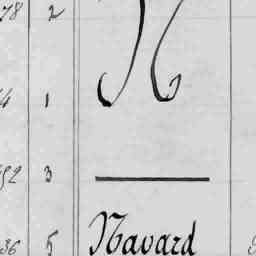 78 2
N
4 1
92 3
36 5 Navard